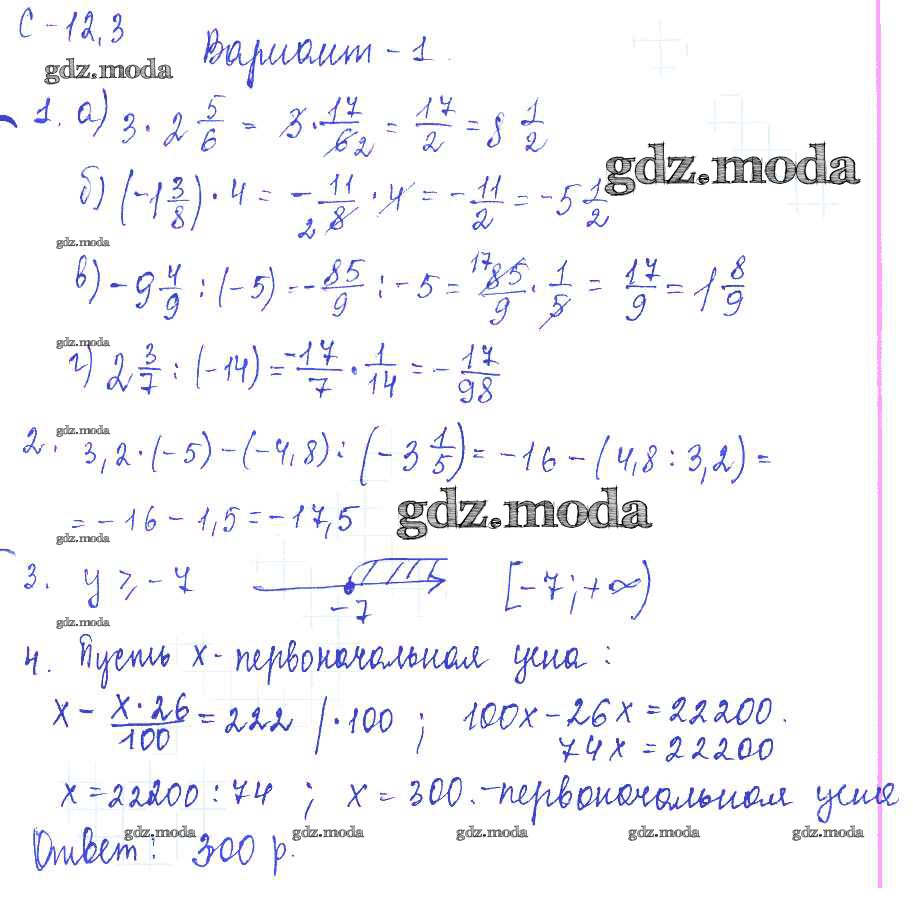 С-12,3
Вариант-1.
gdz.moda
1. а) 3 · 2 5/6 = 3 · 17/6 2 = 17/2 = 8 1/2
gdz.moda
б) (-1 3/8) · 4 = - 11/8 2 · 4 = - 11/2 = -5 1/2
gdz.moda
в) -9 4/9 : (-5) = - 85/9 : -5 = 17 85/9 · 1/5 = 17/9 = 1 8/9
gdz.moda
г) 2 3/7 : (-14) = -17/7 · 1/14 = - 17/98
gdz.moda
2. 3,2 · (-5) - (-4,8) : (-3 1/5) = -16 - (4,8 : 3,2) =
= -16 - 1,5 = -17,5
gdz.moda
gdz.moda
3. y ≥ -7 [-7; +∞)
-7
gdz.moda
4. Пусть х - первоначальная цена:
х - х·26/100 = 222 / ·100 ; 100х - 26х = 22200.
74х = 22200
х = 22200 : 74 ; х = 300. - первоначальная цена
gdz.moda gdz.moda gdz.moda gdz.moda gdz.moda
Ответ: 300 р.